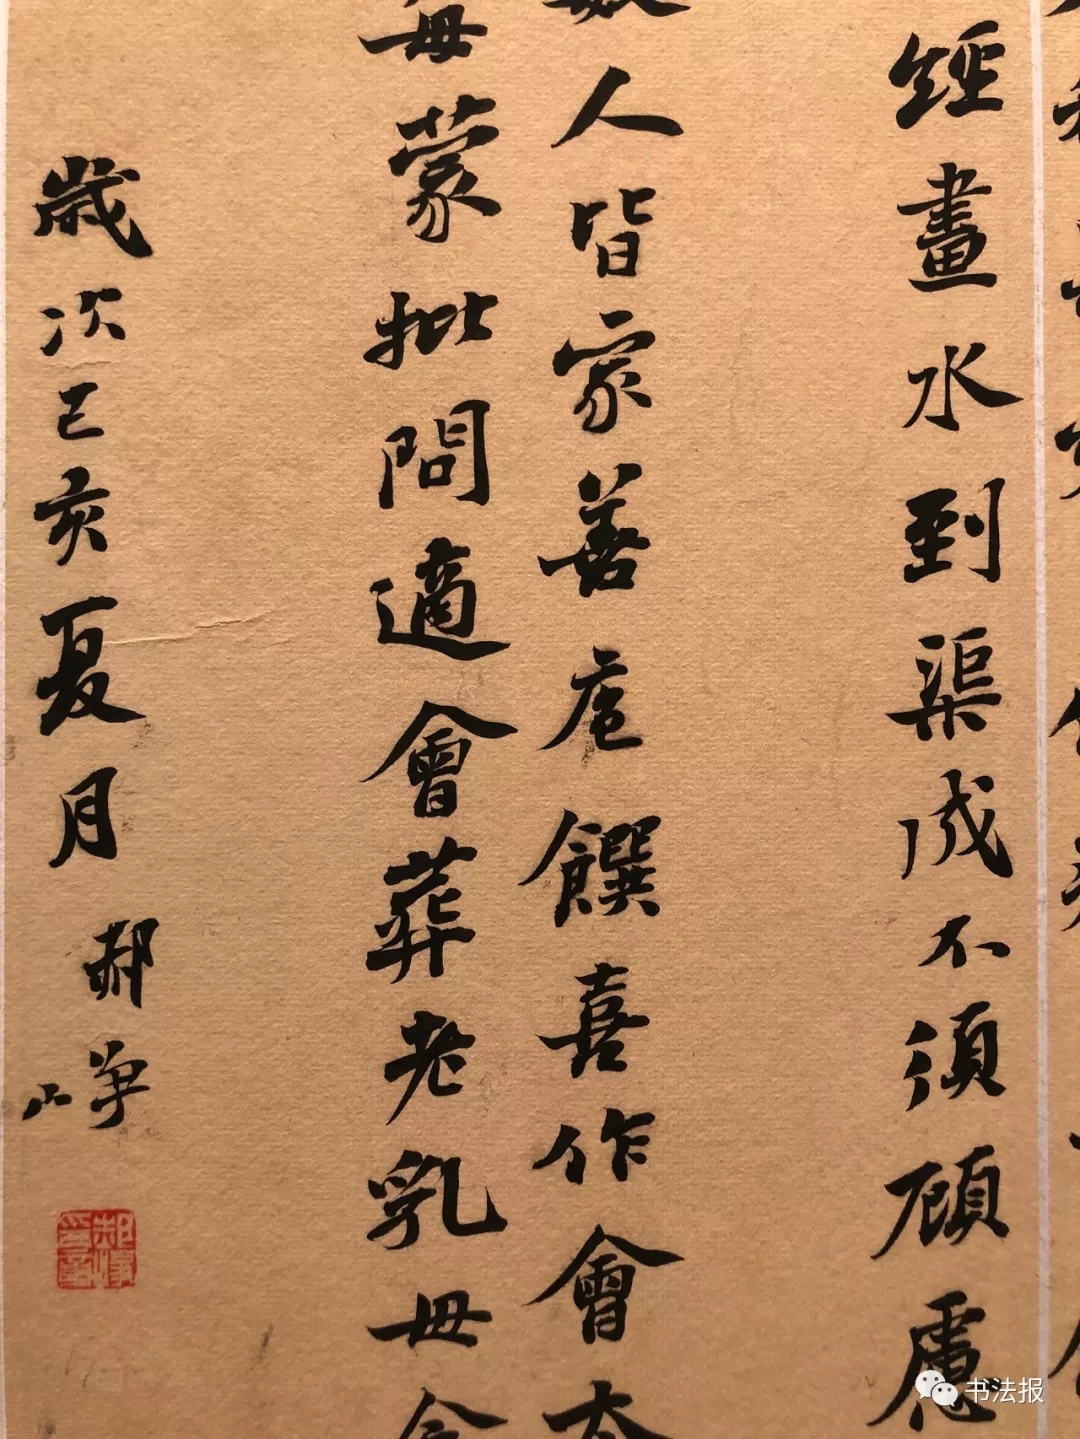 經畫水到渠成不須顧慮
人皆家善庖饌喜作會太
每蒙批問適會葬老乳母今
歲次己亥夏月
郝崢
书法报